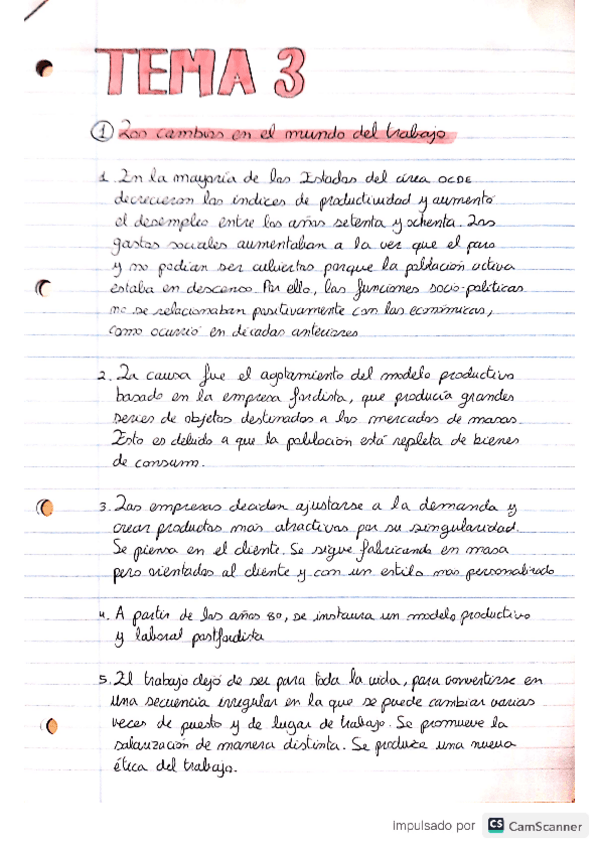 TEMA 3
① Los cambios en el mundo del trabajo
1. En la mayoría de los Estados del área OCDE
decrecieron los índices de productividad y aumentó
el desempleo entre los años setenta y ochenta. Los
gastos sociales aumentaban a la vez que el paro
y no podían ser cubiertos porque la población activa
estaba en descenso. Por ello, las funciones socio-políticas
no se relacionaban positivamente con las económicas,
como ocurrió en décadas anteriores
2. La causa fue el agotamiento del modelo productivo
basado en la empresa fordista, que producía grandes
series de objetos destinados a los mercados de masas.
Esto es debido a que la población está repleta de bienes
de consumo.
3. Las empresas deciden ajustarse a la demanda y
crear productos más atractivos por su singularidad.
Se piensa en el cliente. Se sigue fabricando en masa
pero orientados al cliente y con un estilo más personalizado
4. A partir de los años 80, se instaura un modelo productivo
y laboral postfordista
5. El trabajo dejó de ser para toda la vida, para convertirse en
una secuencia irregular en la que se puede cambiar varias
veces de puesto y de lugar de trabajo. Se promueve la
salarización de manera distinta. Se produce una nueva
ética del trabajo.
Impulsado por CS CamScanner